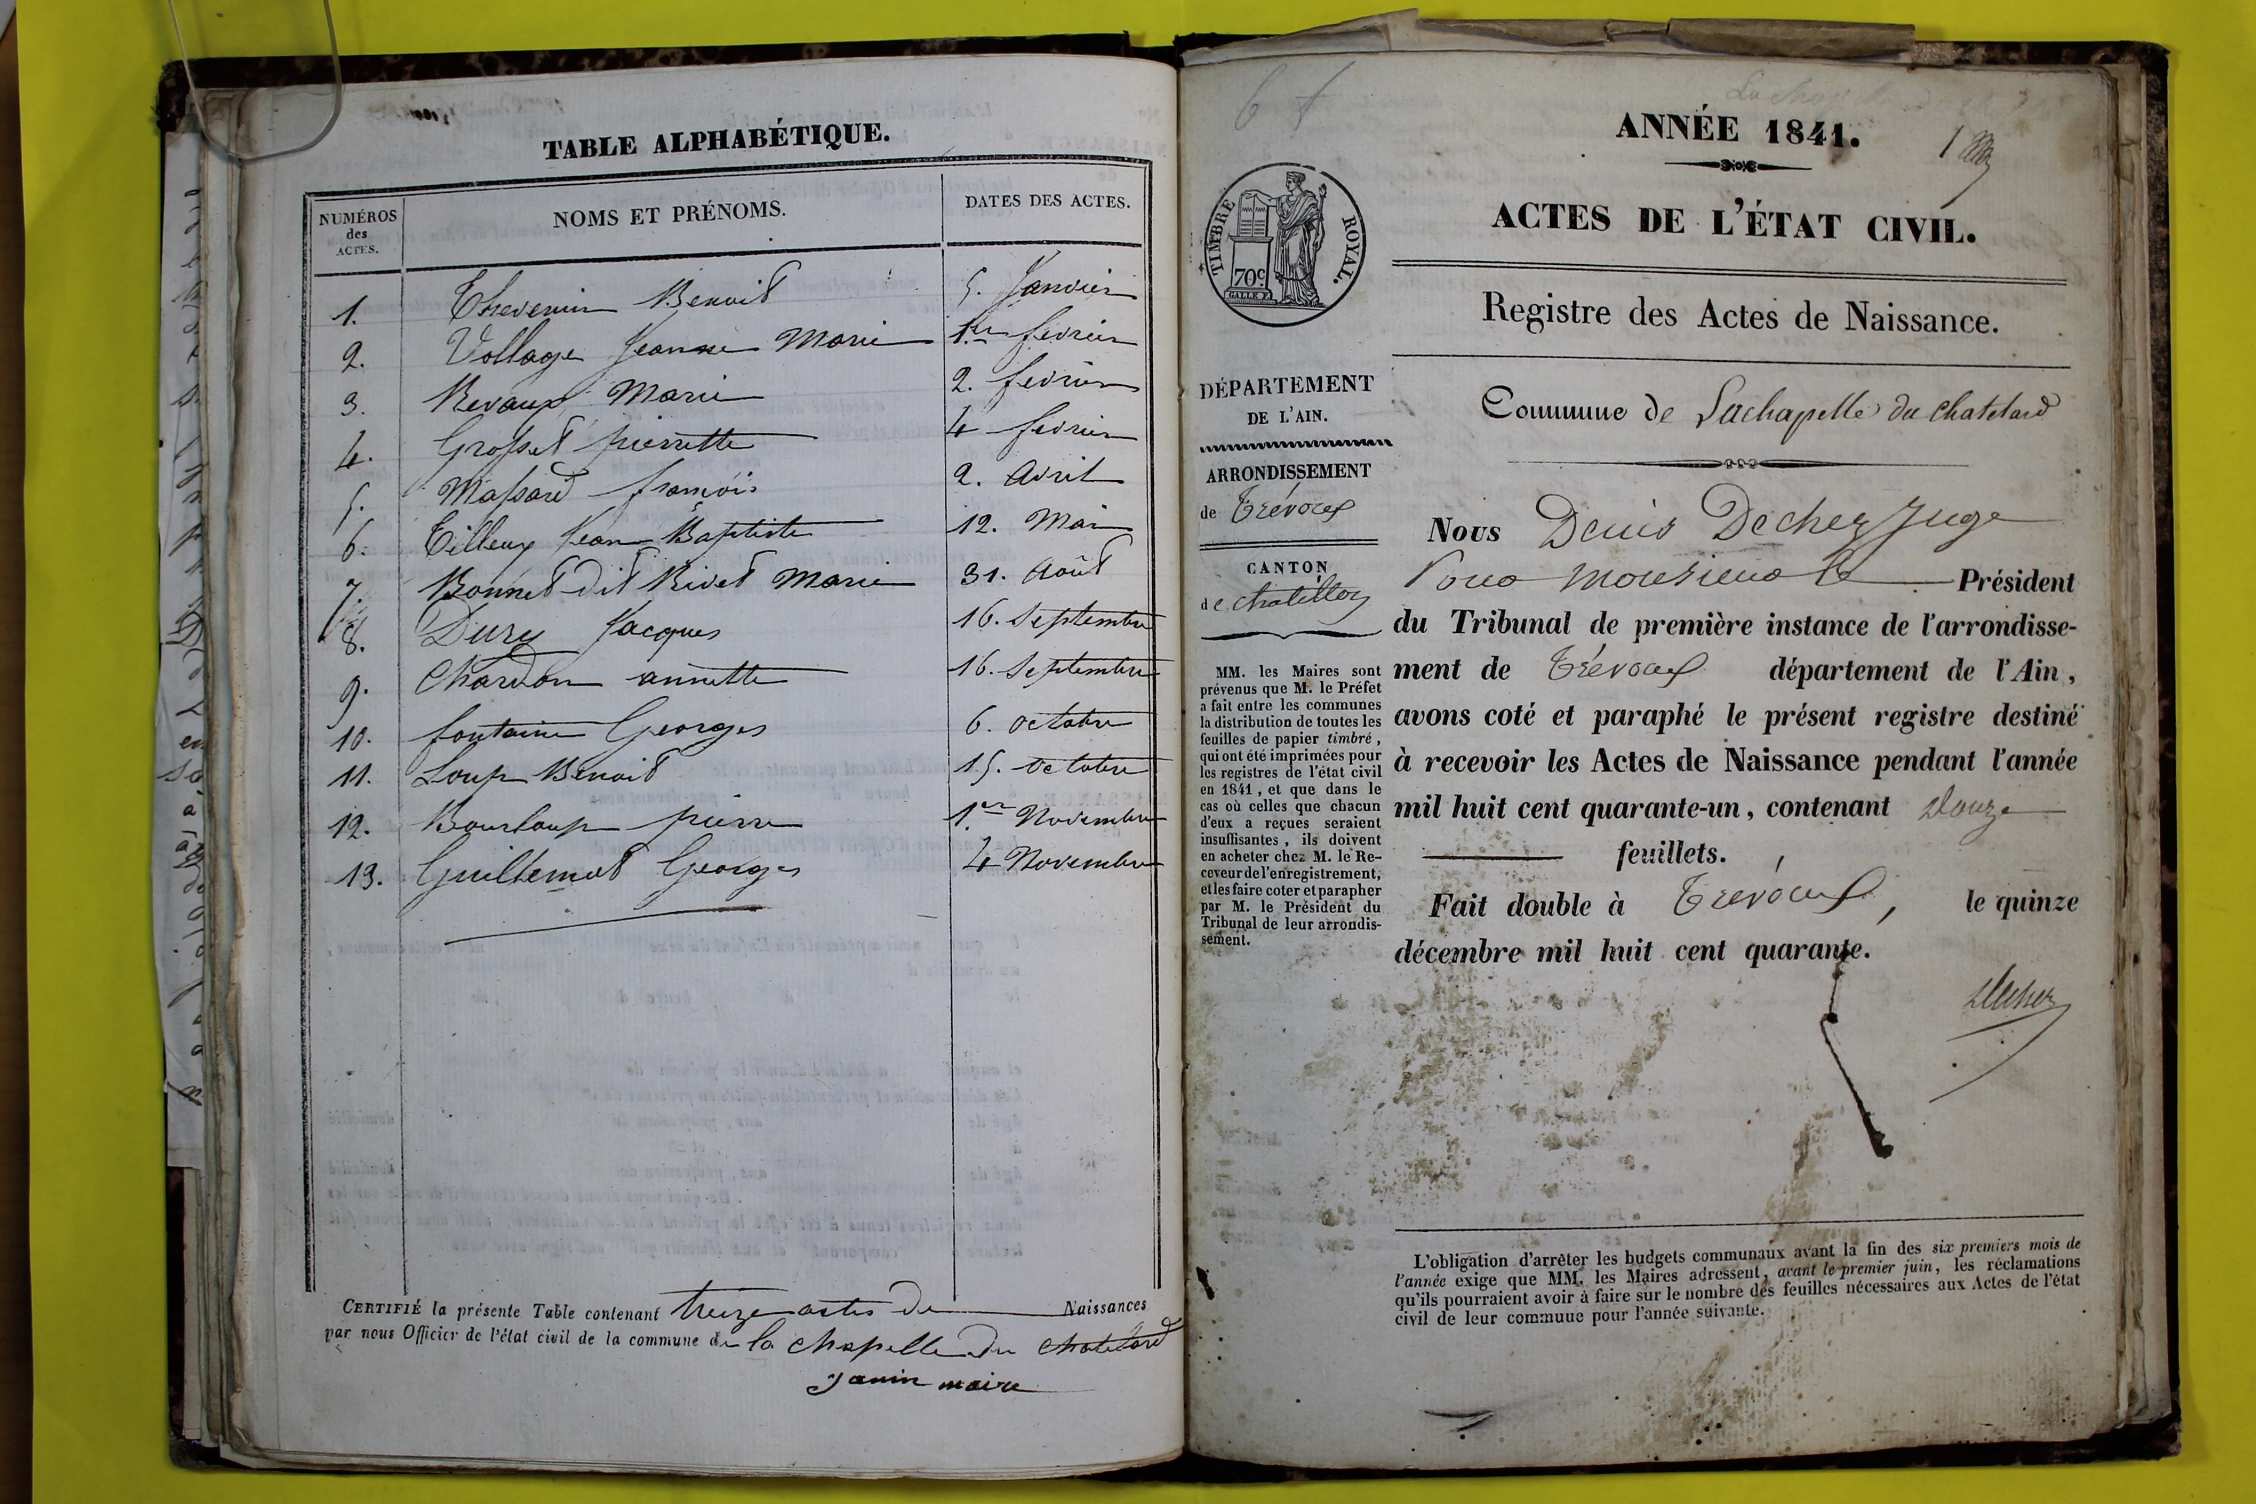 TABLE ALPHABÉTIQUE.
NUMÉROS des ACTES.
NOMS ET PRÉNOMS.
DATES DES ACTES.
1. Thevenin Benoit 5. Janvier
2. Vollage Jeanne Marie 1.er fevrier
3. Revaux Marie 2. fevrier
4. Grosset pierrette 4 fevrier
5. Massard françois 2. Avril
6. Tilleux Jean Baptiste 12. Mai
7. Bonnet dit Rivet Marie 31. Août
8. Dury Jacques 16. Septembre
9. Chardon annette 16. Septembre
10. fontaine Georges 6. octobre
11. Loup Benoit 15. octobre
12. Bourloup pierre 1.er Novembre
13. Guillemot Georges 4 Novembre
CERTIFIÉ la présente Table contenant treize actes de Naissances
par nous Officier de l'état civil de la commune de la chapelle du chatelard
Janin maire
ANNÉE 1841.
ACTES DE L'ÉTAT CIVIL.
TIMBRE ROYAL.
70c
Registre des Actes de Naissance.
DÉPARTEMENT
DE L'AIN.
ARRONDISSEMENT
de Trévoux
CANTON
de chatillon
MM. les Maires sont
prévenus que M. le Préfet
a fait entre les communes
la distribution de toutes les
feuilles de papier timbré,
qui ont été imprimées pour
les registres de l'état civil
en 1841, et que dans le
cas où celles que chacun
d'eux a reçues seraient
insuffisantes, ils doivent
en acheter chez M. le Re-
ceveur de l'enregistrement,
et les faire coter et parapher
par M. le Président du
Tribunal de leur arrondis-
sement.
Commune de Lachapelle du chatelard
Nous Denis Dechez Juge
Pour monsieur le Président
du Tribunal de première instance de l'arrondisse-
ment de Trévoux département de l'Ain,
avons coté et paraphé le présent registre destiné
à recevoir les Actes de Naissance pendant l'année
mil huit cent quarante-un, contenant Douze
feuillets.
Fait double à Trévoux, le quinze
décembre mil huit cent quarante.
Dechez
L'obligation d'arrêter les budgets communaux avant la fin des six premiers mois de
l'année exige que MM. les Maires adressent, avant le premier juin, les réclamations
qu'ils pourraient avoir à faire sur le nombre des feuilles nécessaires aux Actes de l'état
civil de leur commune pour l'année suivante.